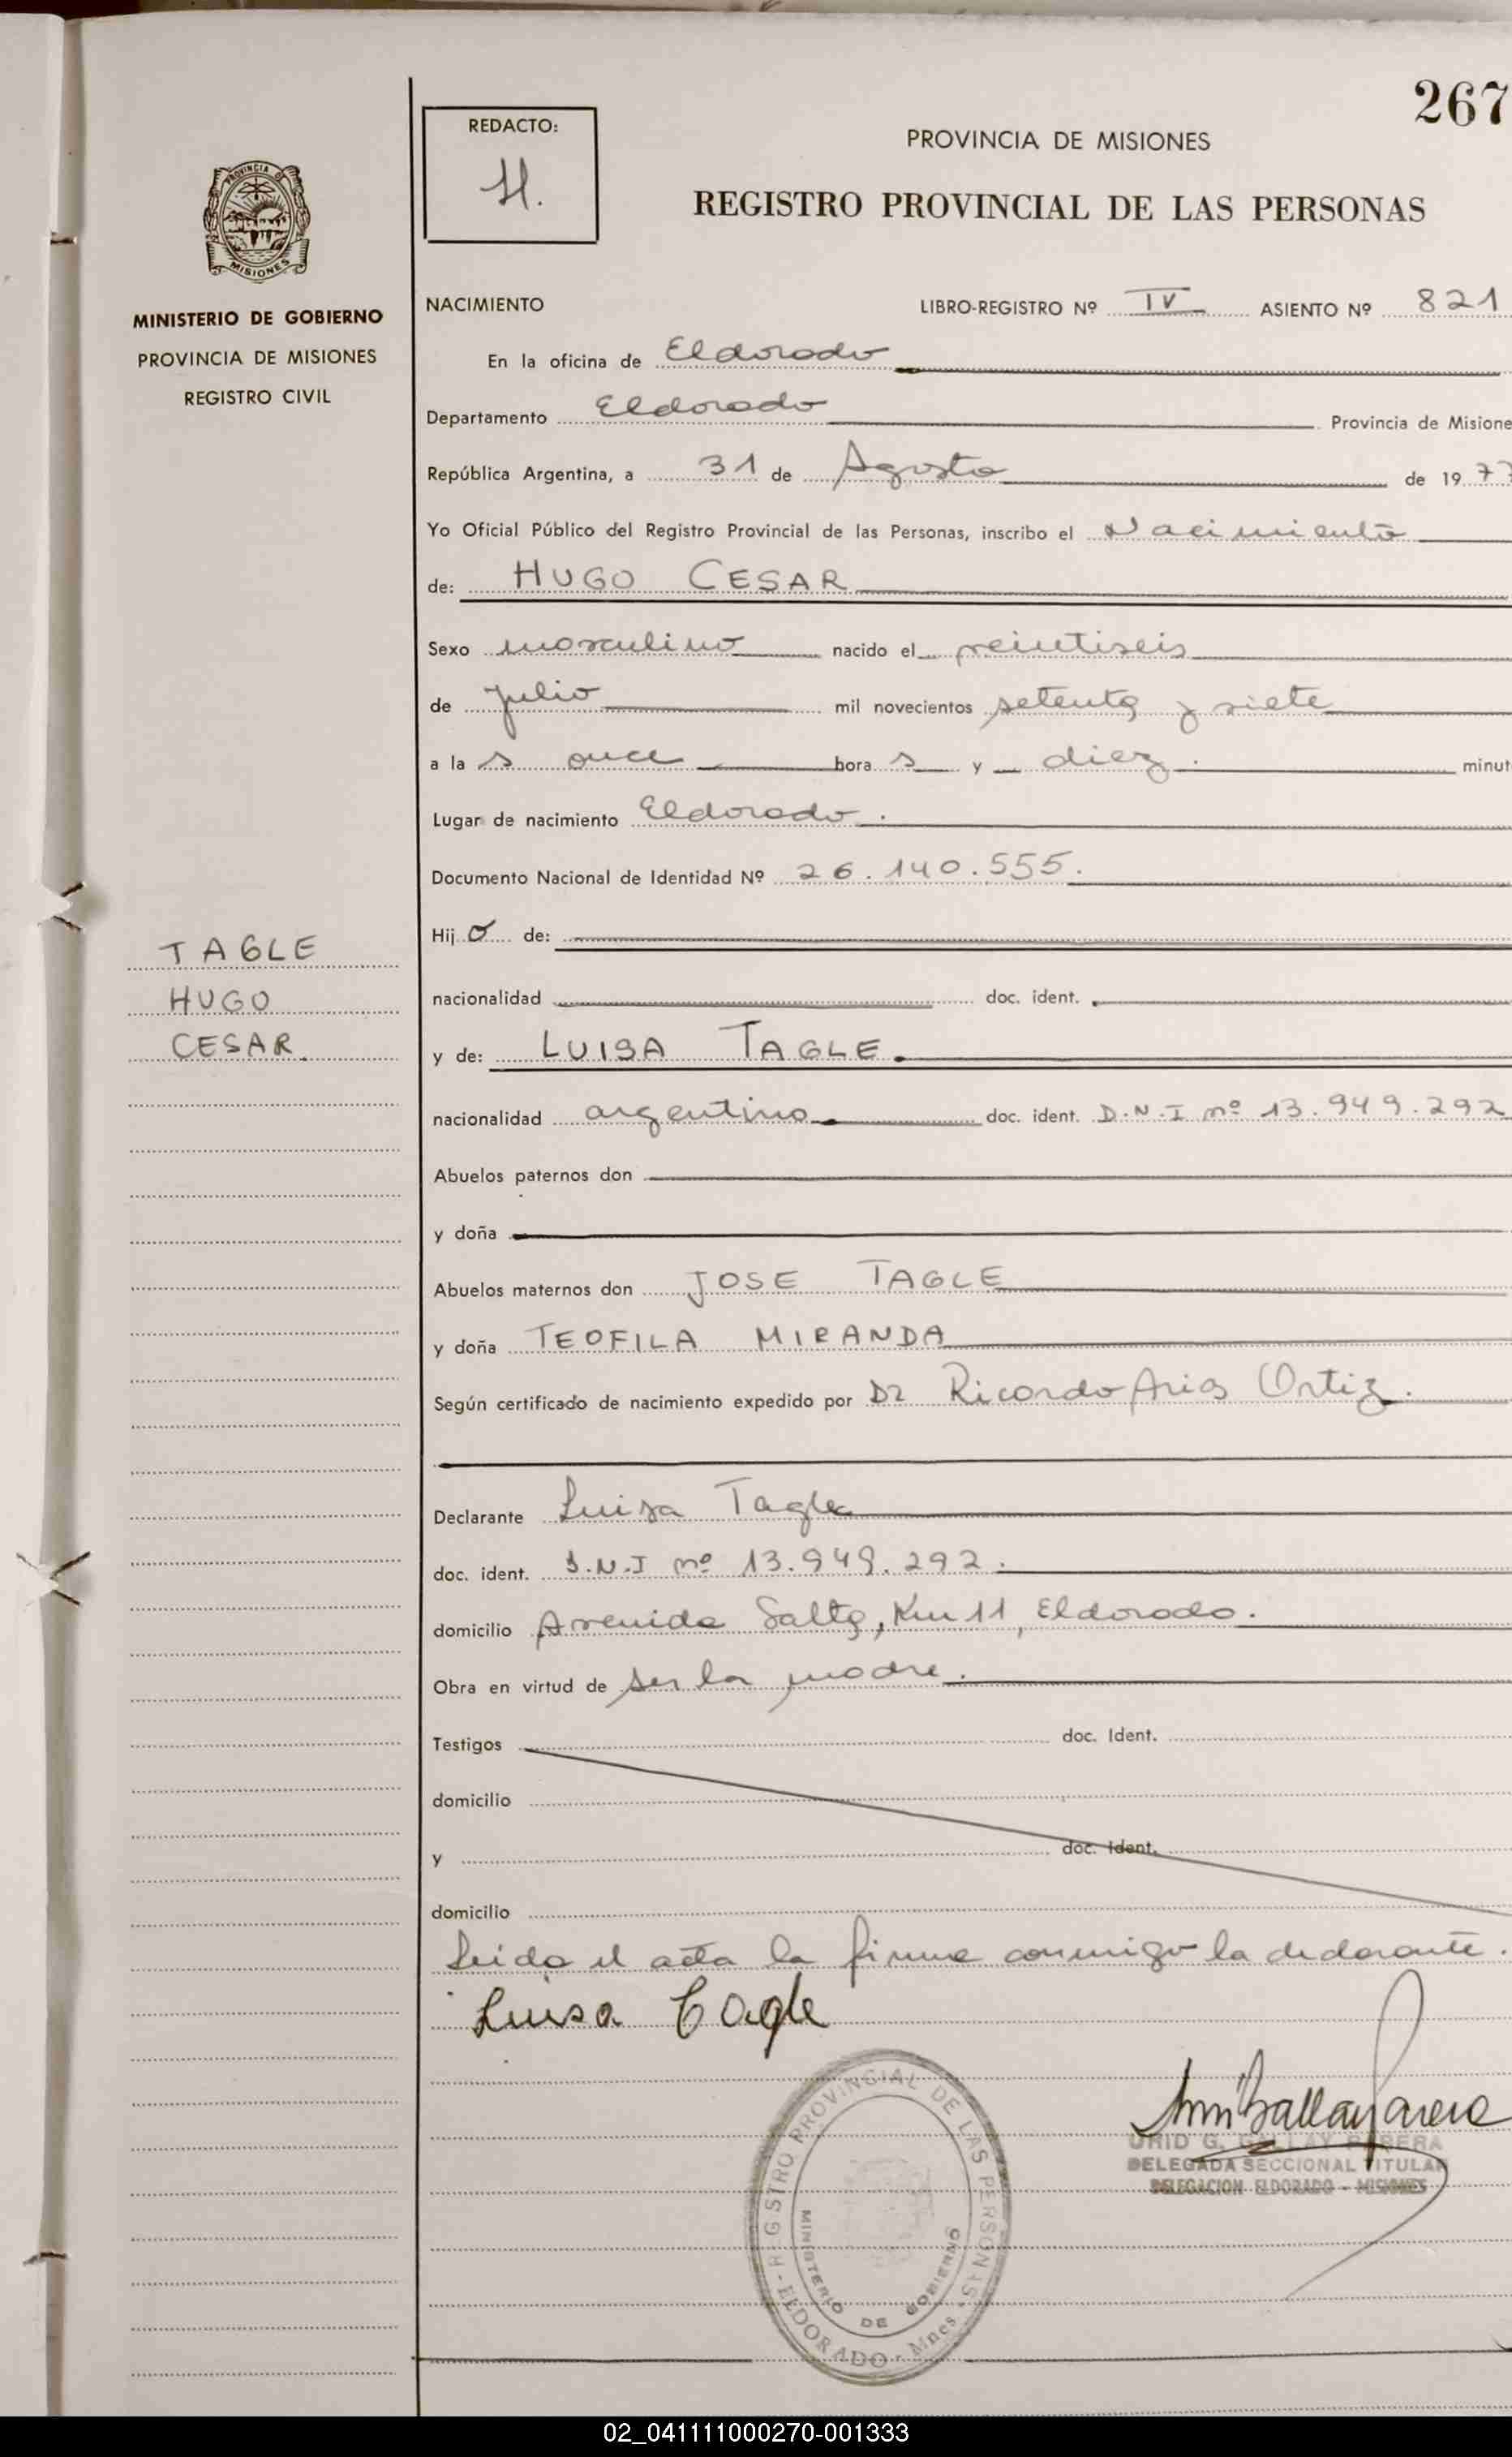 267
REDACTO:
H.
PROVINCIA DE MISIONES
REGISTRO PROVINCIAL DE LAS PERSONAS
PROVINCIA DE
MISIONES
MINISTERIO DE GOBIERNO
PROVINCIA DE MISIONES
REGISTRO CIVIL
NACIMIENTO LIBRO-REGISTRO Nº IV ASIENTO Nº 821
En la oficina de Eldorado
Departamento Eldorado Provincia de Misione
República Argentina, a 31 de Agosto de 1977
Yo Oficial Público del Registro Provincial de las Personas, inscribo el Nacimiento
de: HUGO CESAR
Sexo masculino nacido el veintiseis
de julio mil novecientos setenta y siete
a la s once hora s y diez. minut
Lugar de nacimiento Eldorado.
Documento Nacional de Identidad Nº 26.140.555.
Hij o de:
TAGLE
HUGO
CESAR.
nacionalidad doc. ident.
y de: LUISA TAGLE.
nacionalidad argentina doc. ident. D.N.I nº 13.949.292
Abuelos paternos don
y doña
Abuelos maternos don JOSE TAGLE
y doña TEOFILA MIRANDA
Según certificado de nacimiento expedido por Dr Ricardo Arias Ortiz.
Declarante Luisa Tagle
doc. ident. D.N.I nº 13.949.292.
domicilio Avenida Salta, Km 11, Eldorado.
Obra en virtud de ser la madre.
Testigos doc. Ident.
domicilio
y doc. Ident.
domicilio
Leida el acta la firma conmigo la declarante.
Luisa Tagle
REGISTRO PROVINCIAL DE LAS PERSONAS
MINISTERIO DE GOBIERNO
- ELDORADO - Mnes -
G. GALLAY PERERA
DELEGADA SECCIONAL TITULAR
DELEGACION ELDORADO - MISIONES
02_041111000270-001333